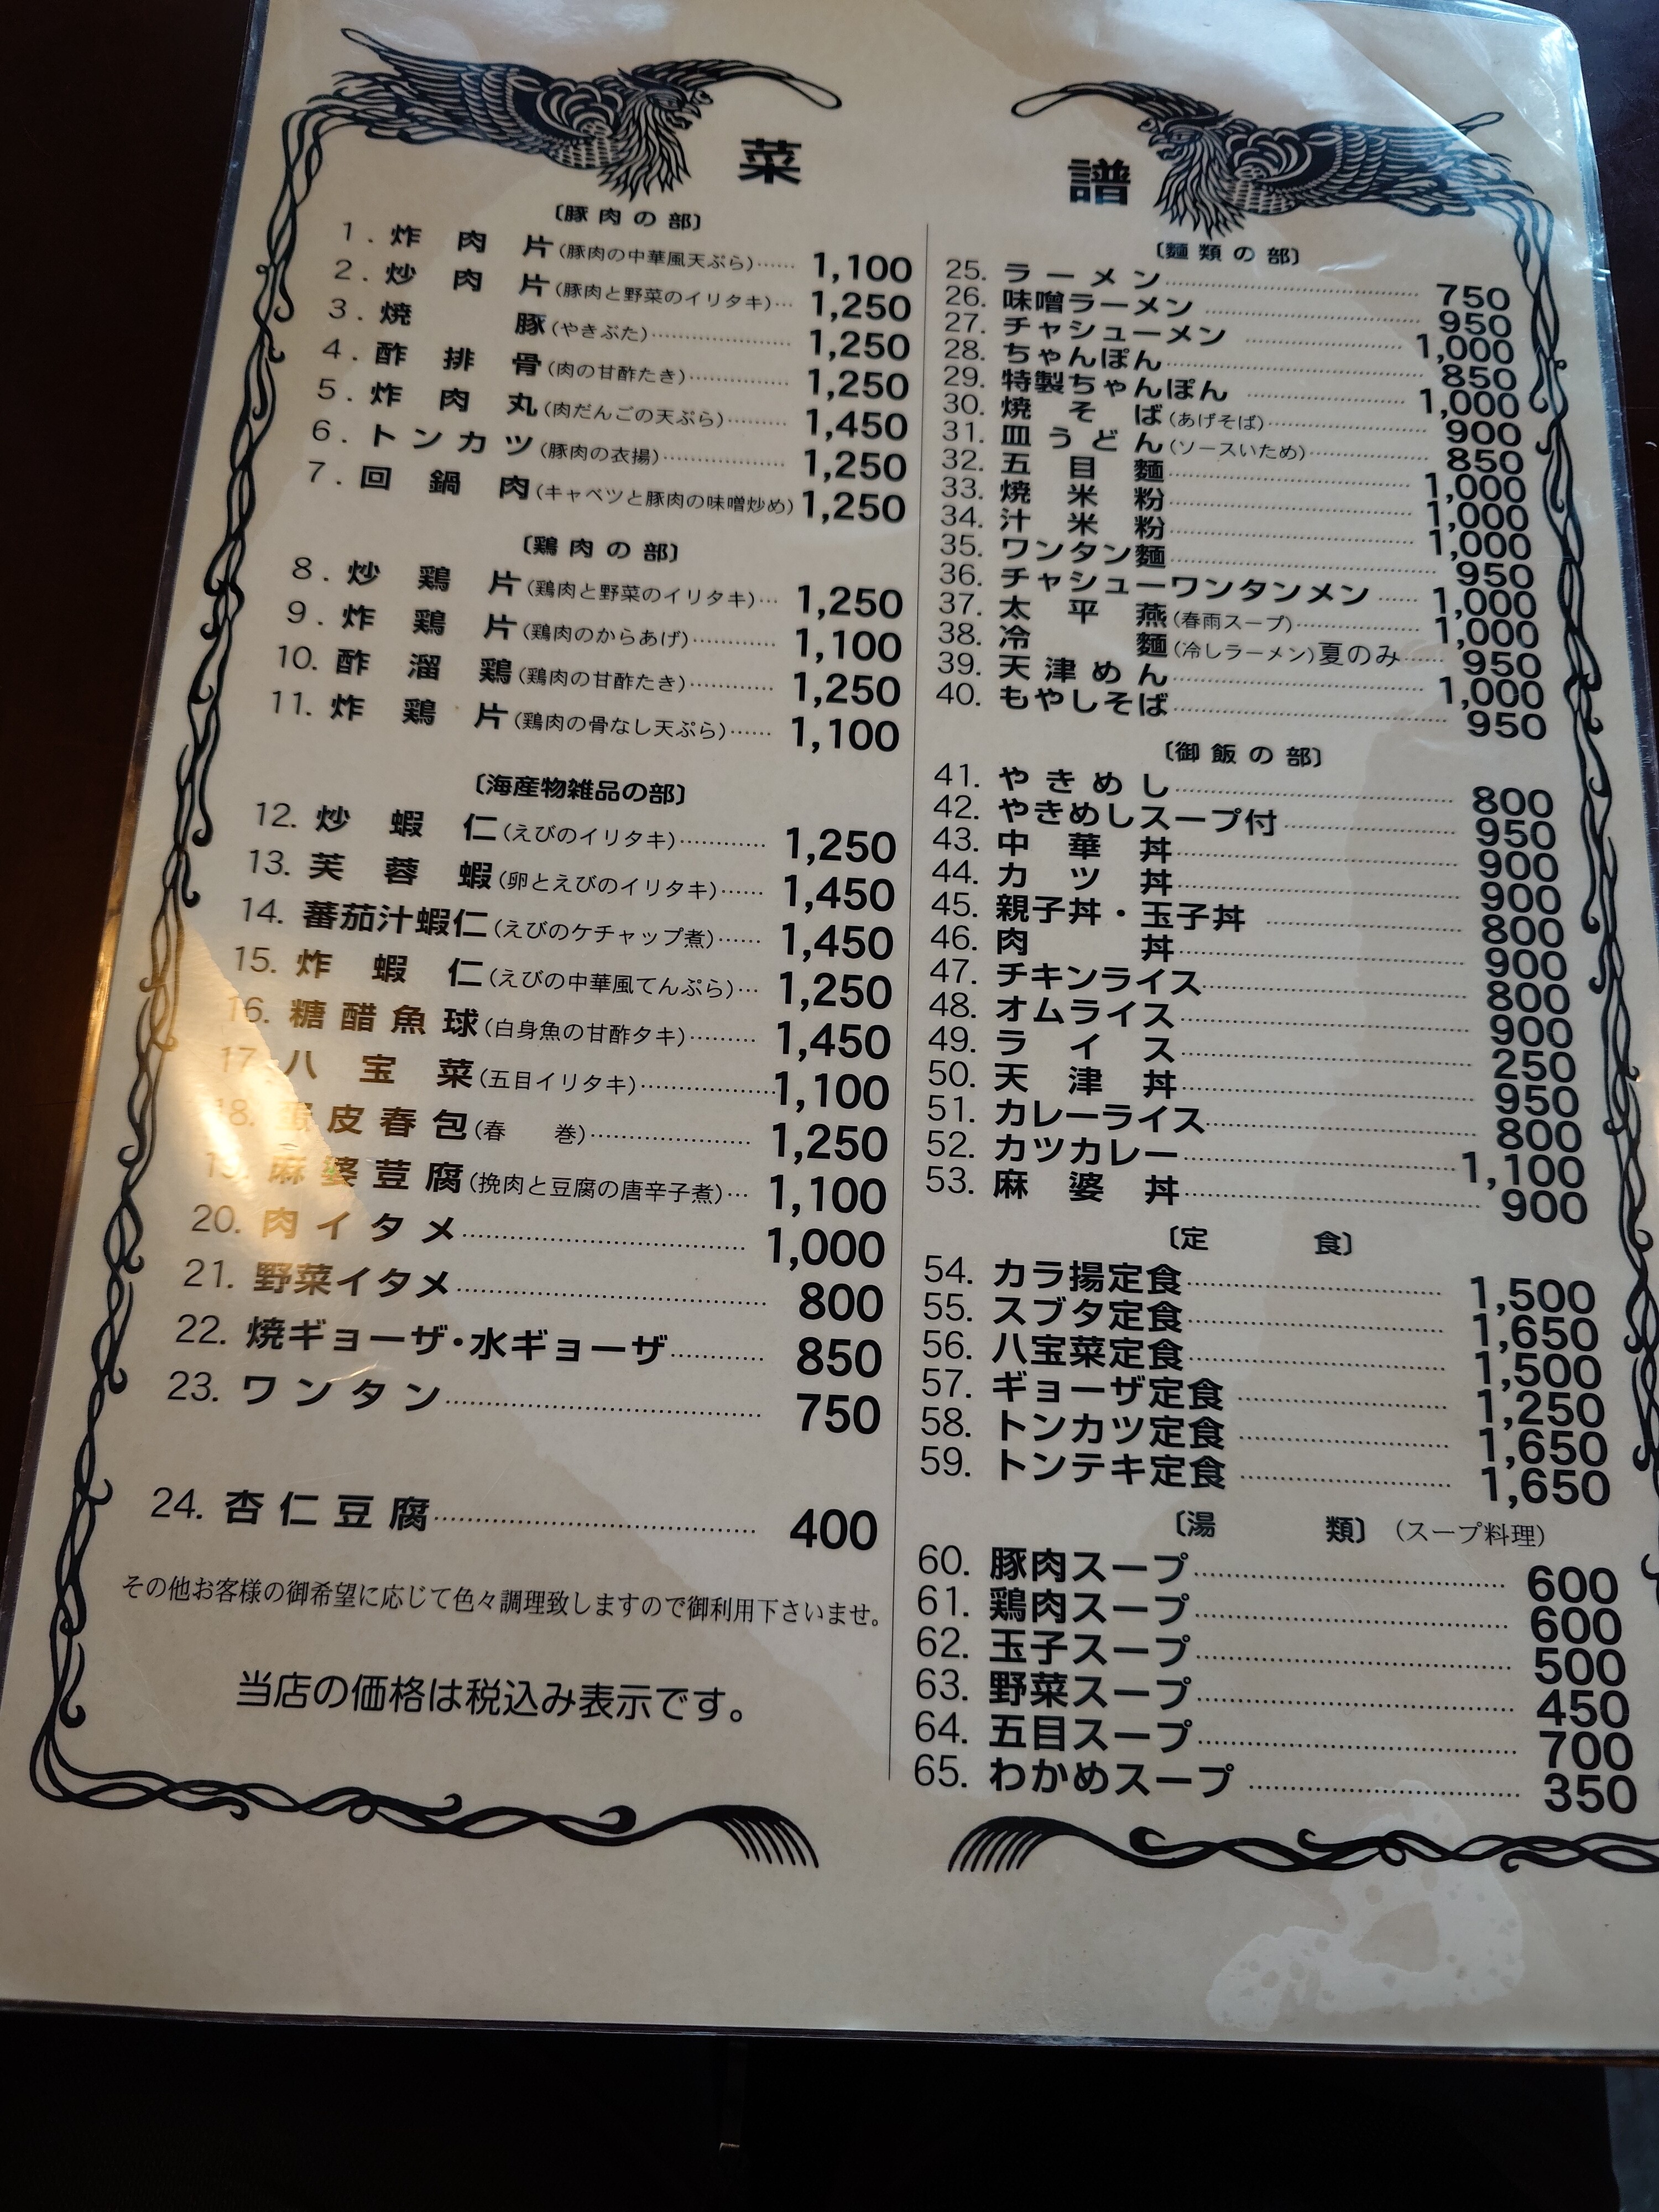 菜 譜
〔豚肉の部〕
1. 炸肉片(豚肉の中華風天ぷら)…… 1,100
2. 炒肉片(豚肉と野菜のイリタキ)… 1,250
3. 焼豚(やきぶた)…… 1,250
4. 酢排骨(肉の甘酢たき)…… 1,250
5. 炸肉丸(肉だんごの天ぷら)…… 1,450
6. トンカツ(豚肉の衣揚)…… 1,250
7. 回鍋肉(キャベツと豚肉の味噌炒め) 1,250
〔鶏肉の部〕
8. 炒鶏片(鶏肉と野菜のイリタキ)… 1,250
9. 炸鶏片(鶏肉のからあげ)…… 1,100
10. 酢溜鶏(鶏肉の甘酢たき)…… 1,250
11. 炸鶏片(鶏肉の骨なし天ぷら)…… 1,100
〔海産物雑品の部〕
12. 炒蝦仁(えびのイリタキ)…… 1,250
13. 芙蓉蝦(卵とえびのイリタキ)…… 1,450
14. 蕃茄汁蝦仁(えびのケチャップ煮)…… 1,450
15. 炸蝦仁(えびの中華風てんぷら)… 1,250
16. 糖醋魚球(白身魚の甘酢タキ)…… 1,450
17. 八宝菜(五目イリタキ)…… 1,100
18. 皮春包(春 巻)…… 1,250
19. 麻婆荳腐(挽肉と豆腐の唐辛子煮)… 1,100
20. 肉イタメ…… 1,000
21. 野菜イタメ…… 800
22. 焼ギョーザ・水ギョーザ…… 850
23. ワンタン…… 750
24. 杏仁豆腐…… 400
その他お客様の御希望に応じて色々調理致しますので御利用下さいませ。
当店の価格は税込み表示です。
〔麵類の部〕
25. ラーメン…… 750
26. 味噌ラーメン…… 950
27. チャシューメン…… 1,000
28. ちゃんぽん…… 850
29. 特製ちゃんぽん…… 1,000
30. 焼そば(あげそば)…… 900
31. 皿うどん(ソースいため)…… 850
32. 五目麵…… 1,000
33. 焼米粉…… 1,000
34. 汁米粉…… 1,000
35. ワンタン麵…… 950
36. チャシューワンタンメン…… 1,000
37. 太平燕(春雨スープ)…… 1,000
38. 冷麵(冷しラーメン)夏のみ…… 950
39. 天津めん…… 1,000
40. もやしそば…… 950
〔御飯の部〕
41. やきめし…… 800
42. やきめしスープ付…… 950
43. 中華丼…… 900
44. カツ丼…… 900
45. 親子丼・玉子丼…… 800
46. 肉丼…… 900
47. チキンライス…… 800
48. オムライス…… 900
49. ライス…… 250
50. 天津丼…… 950
51. カレーライス…… 800
52. カツカレー…… 1,100
53. 麻婆丼…… 900
〔定 食〕
54. カラ揚定食…… 1,500
55. スブタ定食…… 1,650
56. 八宝菜定食…… 1,500
57. ギョーザ定食…… 1,250
58. トンカツ定食…… 1,650
59. トンテキ定食…… 1,650
〔湯 類〕(スープ料理)
60. 豚肉スープ…… 600
61. 鶏肉スープ…… 600
62. 玉子スープ…… 500
63. 野菜スープ…… 450
64. 五目スープ…… 700
65. わかめスープ…… 350